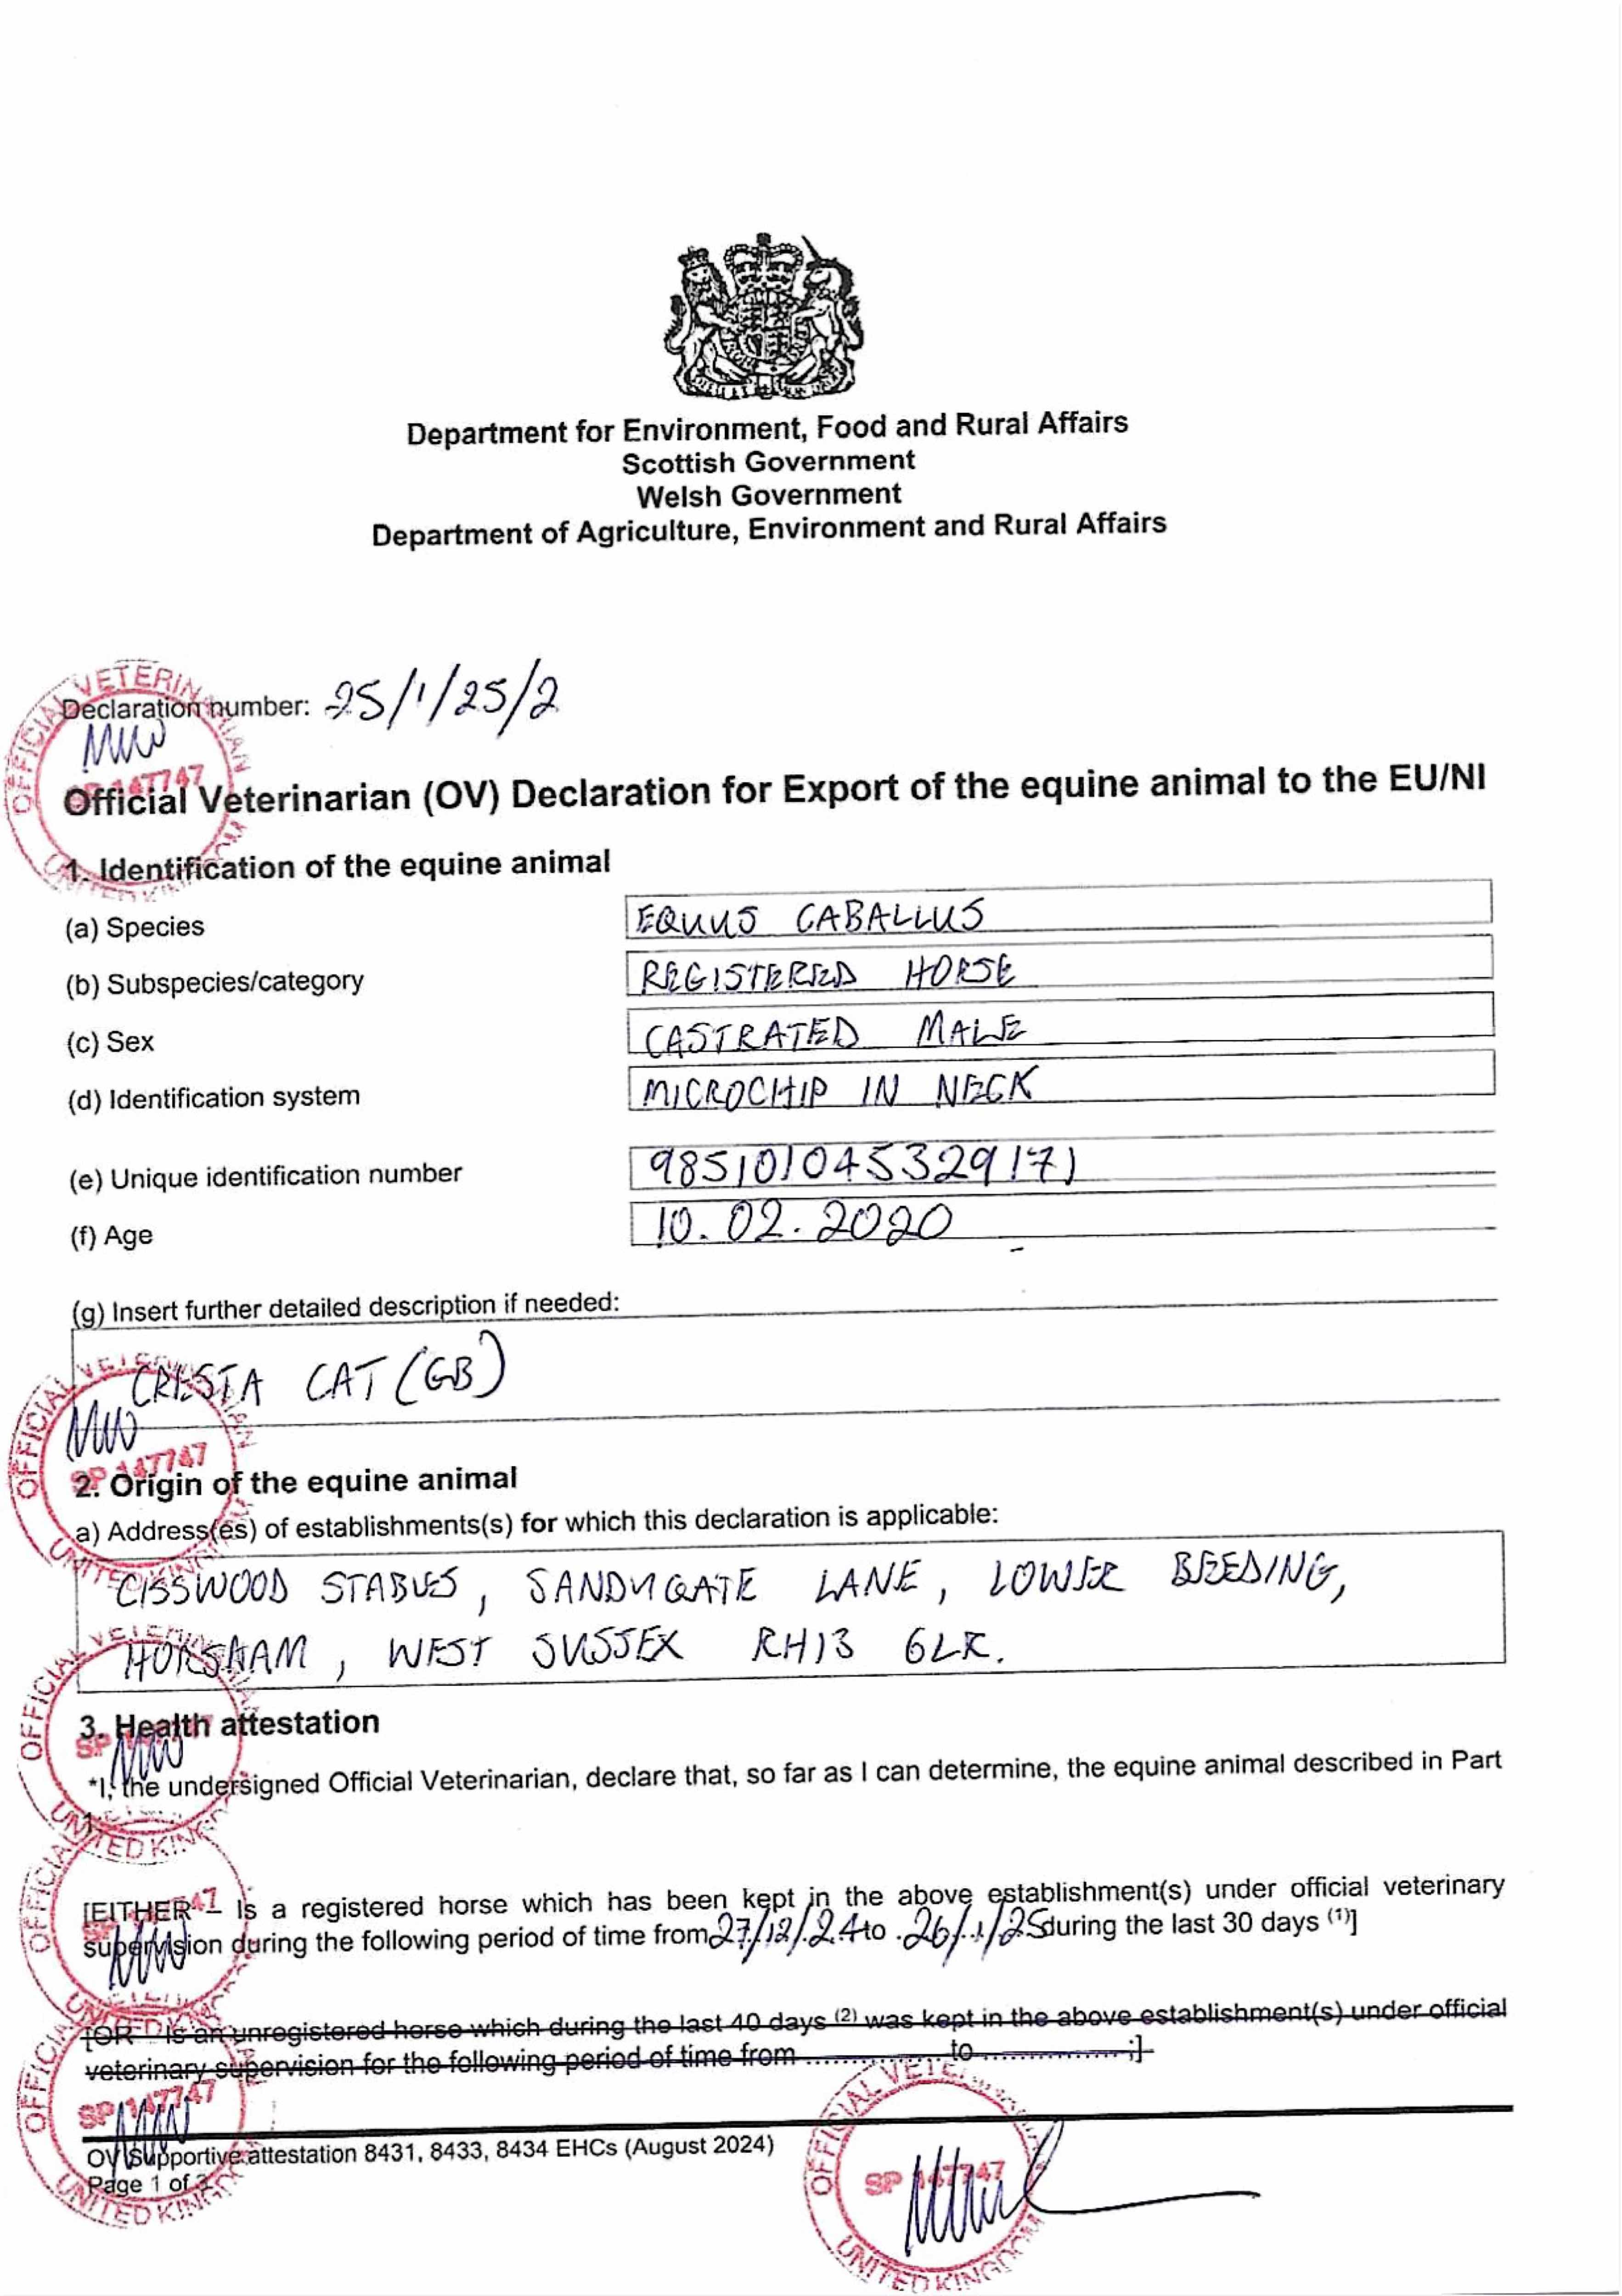 Department for Environment, Food and Rural Affairs
Scottish Government
Welsh Government
Department of Agriculture, Environment and Rural Affairs
Declaration number: 25/1/25/2
Official Veterinarian (OV) Declaration for Export of the equine animal to the EU/NI
1. Identification of the equine animal
(a) Species EQUUS CABALLUS
(b) Subspecies/category REGISTERED HORSE
(c) Sex CASTRATED MALE
(d) Identification system MICROCHIP IN NECK
(e) Unique identification number 985101045329171
(f) Age 10.02.2020
(g) Insert further detailed description if needed:
CRESTA CAT (GB)
2. Origin of the equine animal
a) Address(es) of establishments(s) for which this declaration is applicable:
CISSWOOD STABLES, SANDYGATE LANE, LOWER BEEDING,
HORSHAM, WEST SUSSEX RH13 6LR.
3. Health attestation
*I, the undersigned Official Veterinarian, declare that, so far as I can determine, the equine animal described in Part
1:
[EITHER – Is a registered horse which has been kept in the above establishment(s) under official veterinary
supervision during the following period of time from 27/12/24 to 26/1/25 during the last 30 days (1)]
[OR – Is an unregistered horse which during the last 40 days (2) was kept in the above establishment(s) under official
veterinary supervision for the following period of time from ............... to ...............;]
OV Supportive attestation 8431, 8433, 8434 EHCs (August 2024)
Page 1 of 3
OFFICIAL VETERINARIAN
SP 147747
UNITED KINGDOM